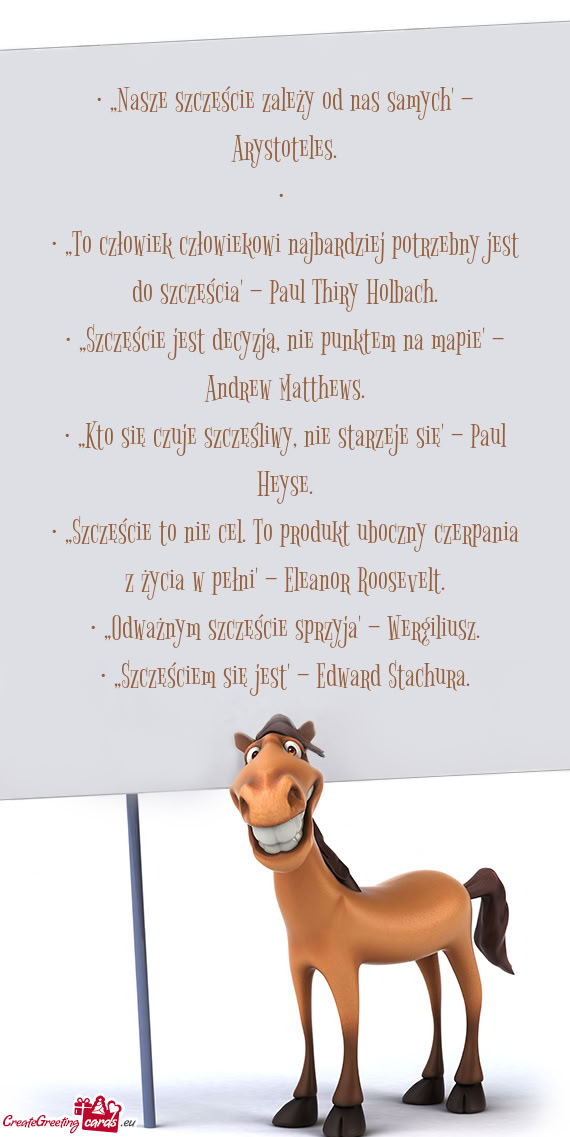 · „Nasze szczęście zależy od nas samych' –
Arystoteles.
·
· „To człowiek człowiekowi najbardziej potrzebny jest
do szczęścia' – Paul Thiry Holbach.
· „Szczęście jest decyzją, nie punktem na mapie' –
Andrew Matthews.
· „Kto się czuje szczęśliwy, nie starzeje się' – Paul
Heyse.
· „Szczęście to nie cel. To produkt uboczny czerpania
z życia w pełni' – Eleanor Roosevelt.
· „Odważnym szczęście sprzyja' – Wergiliusz.
· „Szczęściem się jest' – Edward Stachura.
CreateGreeting cards .eu